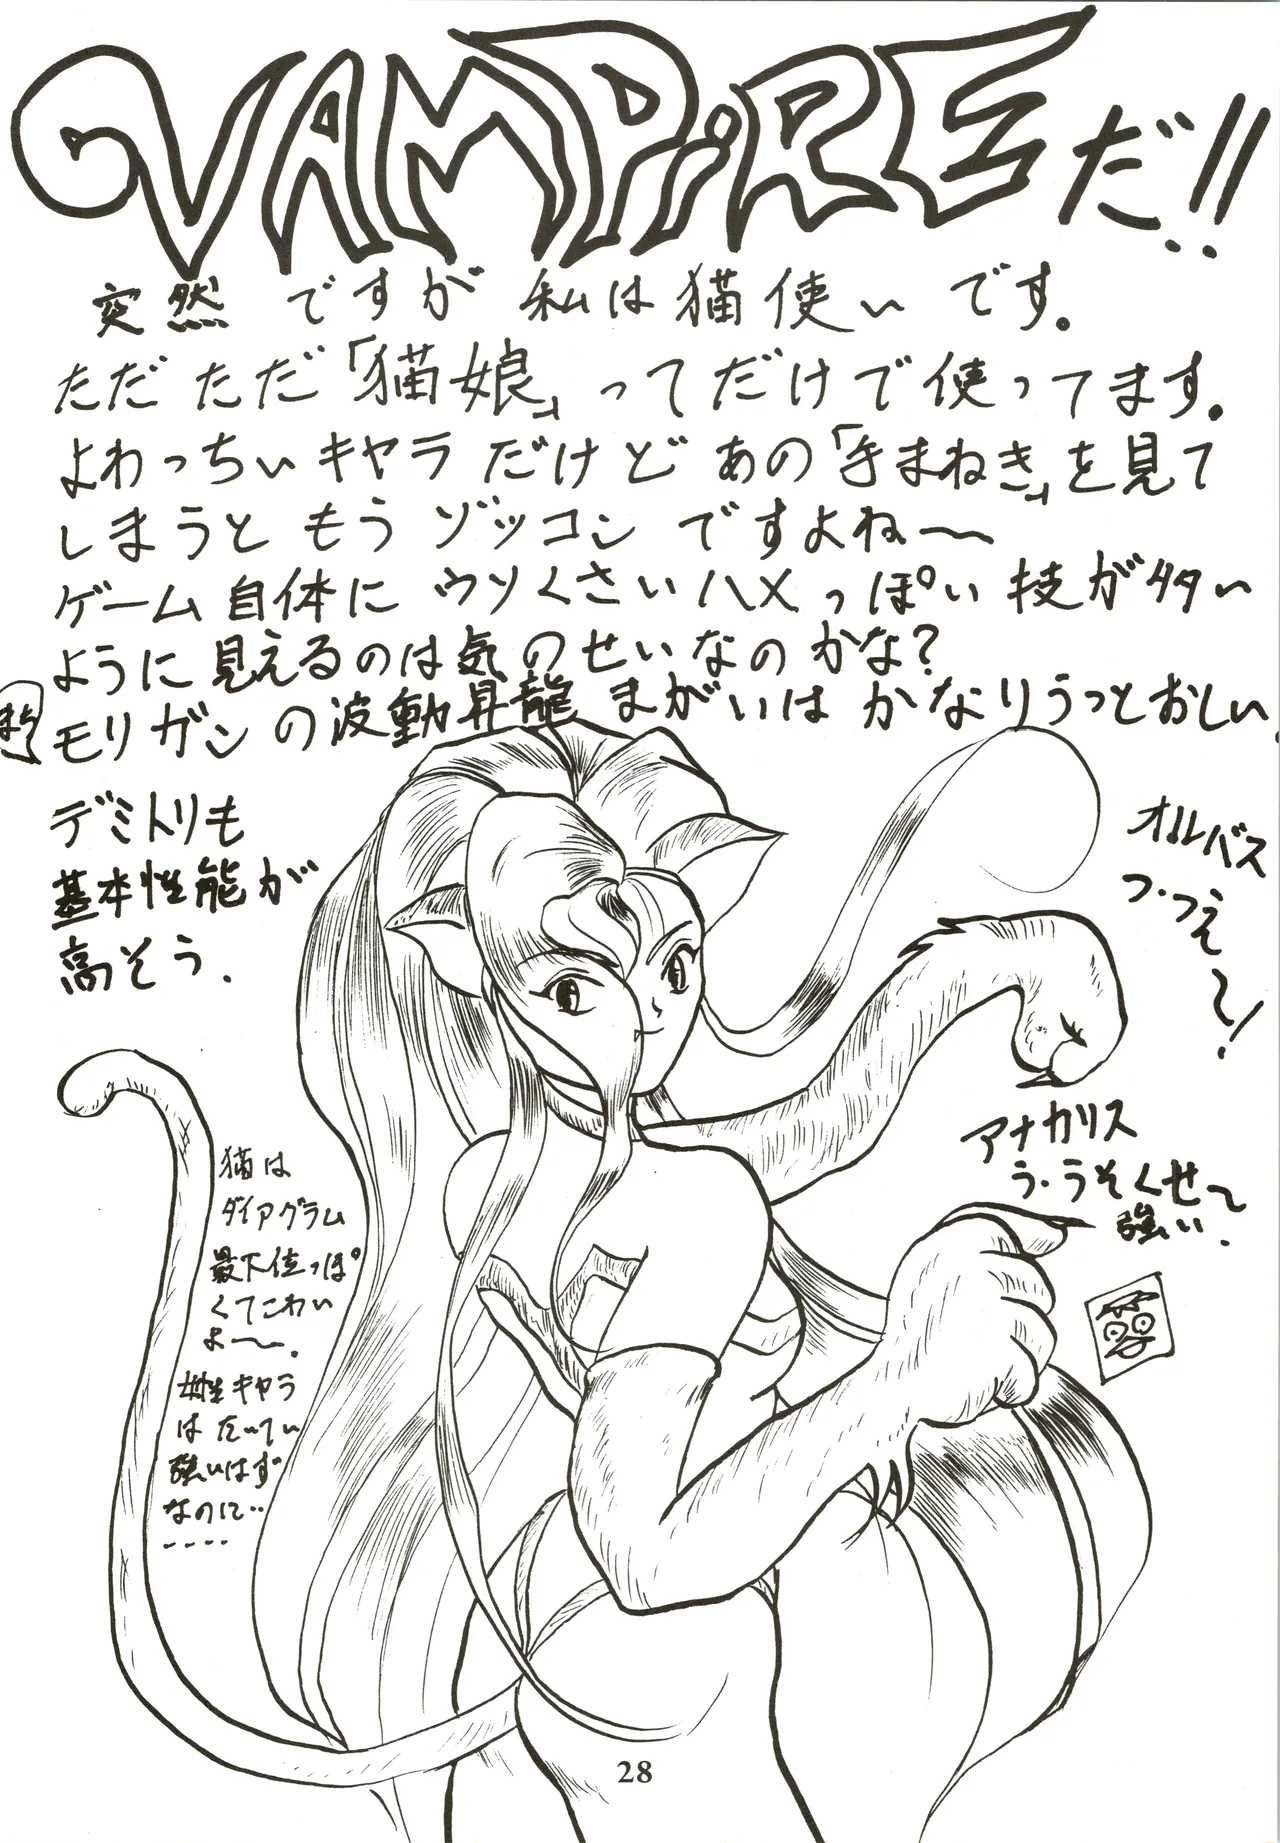 VAMPiREだ!!
突然ですが私は猫使いです。
ただただ「猫娘」ってだけで使ってます。
よわっちいキャラだけどあの「手まねき」を見て
しまうともうゾッコンですよね〜
ゲーム自体にウソくさいハメっぽい技が多い
ように見えるのは気のせいなのかな？
モリガンの波動昇龍まがいはかなりうっとおしい.
デミトリも
基本性能が
高そう.
オルバス
つ・つえ
〜!
アナカリス
う・うそくせ〜
強い.
猫は
ダイアグラム
最下位っぽ
くてこわい
よ〜.
女性キャラ
はたいてい
強いはず
なのに‥
‥‥
28